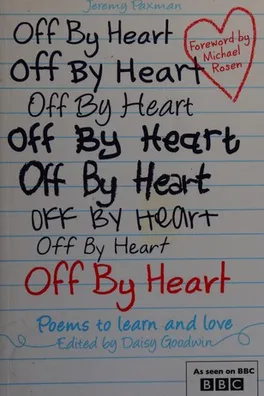 Jeremy Paxman
Off By Heart
Foreword by
Michael
Rosen
Off By Heart
Off By Heart
Off By Heart
Off By Heart
OFF BY HEART
Off By Heart
Off By Heart
Poems to learn and love
Edited by Daisy Goodwin
As seen on BBC
BBC